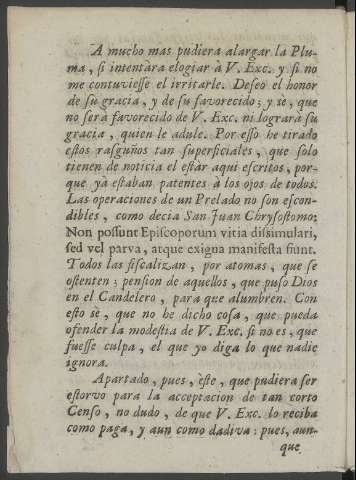 A mucho mas pudiera alargar la Plu-
ma, si intentàra elogiar à V. Exc. y si no
me contuviesse el irritarle. Deseo el honor
de su gracia, y de su favorecido; y sè, que
no serà favorecido de V. Exc. ni lograrà su
gracia, quien le adule. Por esso he tirado
estos rasguños tan superficiales, que solo
tienen de noticia el estàr aqui escritos, por-
que yà estaban patentes à los ojos de todos.
Las operaciones de un Prelado no son escon-
dibles, como decia San Juan Chrysostomo:
Non possunt Episcoporum vitia dissimulari,
sed vel parva, atque exigua manifesta fiunt.
Todos las fiscalizan, por atomas, que se
ostenten; pension de aquellos, que puso Dios
en el Candelero, para que alumbren. Con
esto sè, que no he dicho cosa, que pueda
ofender la modestia de V. Exc. si no es, que
fuesse culpa, el que yo diga lo que nadie
ignora.
Apartado, pues, èste, que pudiera ser
estorvo para la acceptacion de tan corto
Censo, no dudo, de que V. Exc. lo reciba
como paga, y aun como dadiva: pues, aun-
que